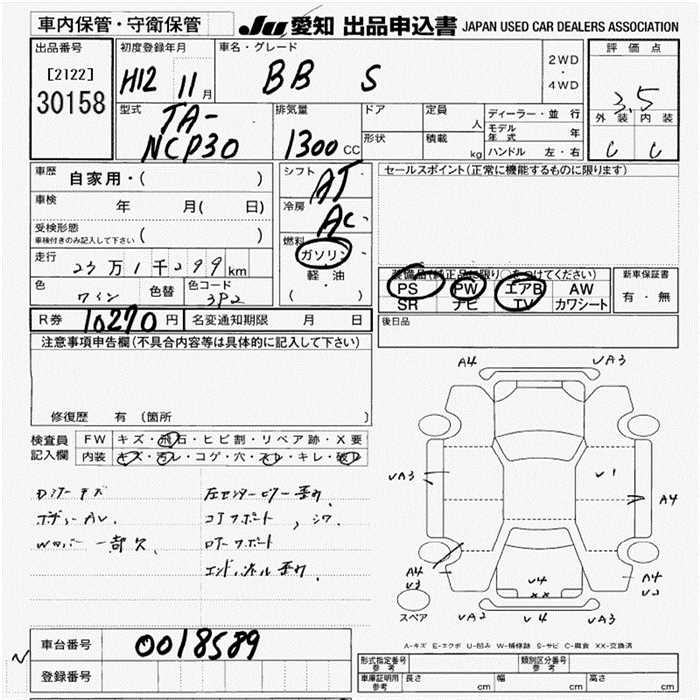 車内保管・守衛保管
JU 愛知 出品申込書 JAPAN USED CAR DEALERS ASSOCIATION
出品番号
[2122]
30158
初度登録年月
H12 11月
車名・グレード
BB S
2WD
・
4WD
評価点
3.5
外装 内装
C C
型式
TA-
NCP30
排気量
1300cc
ドア
形状
定員 人
積載 kg
ディーラー・並行
モデル年式 年
ハンドル 左・右
車歴 自家用・( )
車検 年 月( 日)
受検形態
車検付きのみ記入して下さい ( )
走行 23万1千299km
色 ワイン 色替 色コード 3P2
シフト AT
冷房 AC
燃料
ガソリン
軽・油
( )
セールスポイント(正常に機能するものに限ります)
装備品(純正品に限り○をつけてください)
PS PW エアB AW
SR ナビ TV カワシート
新車保証書
有・無
R券 10270円 名変通知期限 月 日
後日品
注意事項申告欄(不具合内容等は具体的に記入して下さい)
修復歴 有(箇所 )
検査員
記入欄
FW キズ・飛石・ヒビ割・リペア跡・X要
内装 キズ・汚レ・コゲ・穴・スレ・キレ・破レ
A4 UA3
UA3 U1 A4
A4
U3
U4
XX
A4
U2
スペア UA2 U4 UA3
A-キズ E-エクボ U-凹み W-補修跡 S-サビ C-腐食 XX-交換済
車台番号 0018589
登録番号
型式指定番号
参考
類別区分番号
参考
車庫証明用
参考
長さ cm 幅 cm 高さ cm